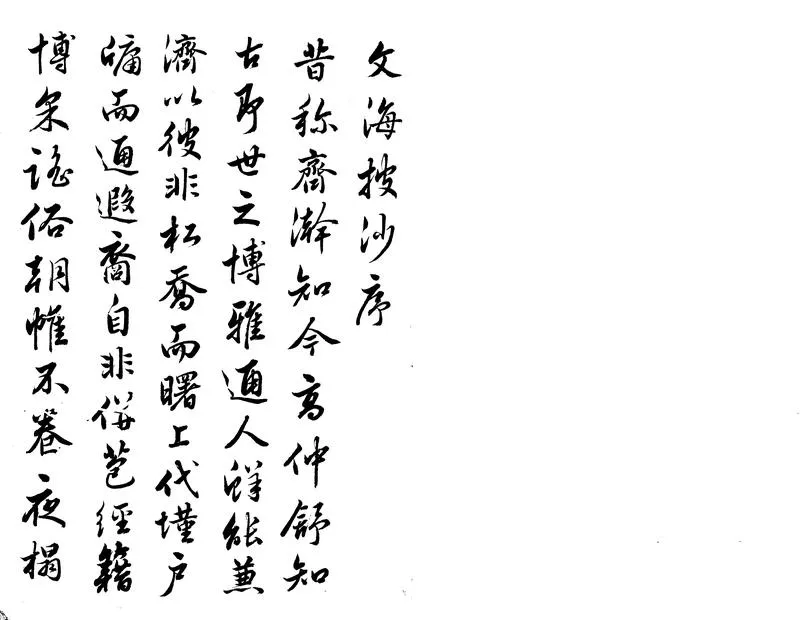 文海披沙序
昔称齊澣知今高仲舒知
古即世之博雅通人鲜能兼
濟以彼非松喬而曙上代墐户
牖而通遐裔自非併苞經籍
博采謠俗朝帷不卷夜榻